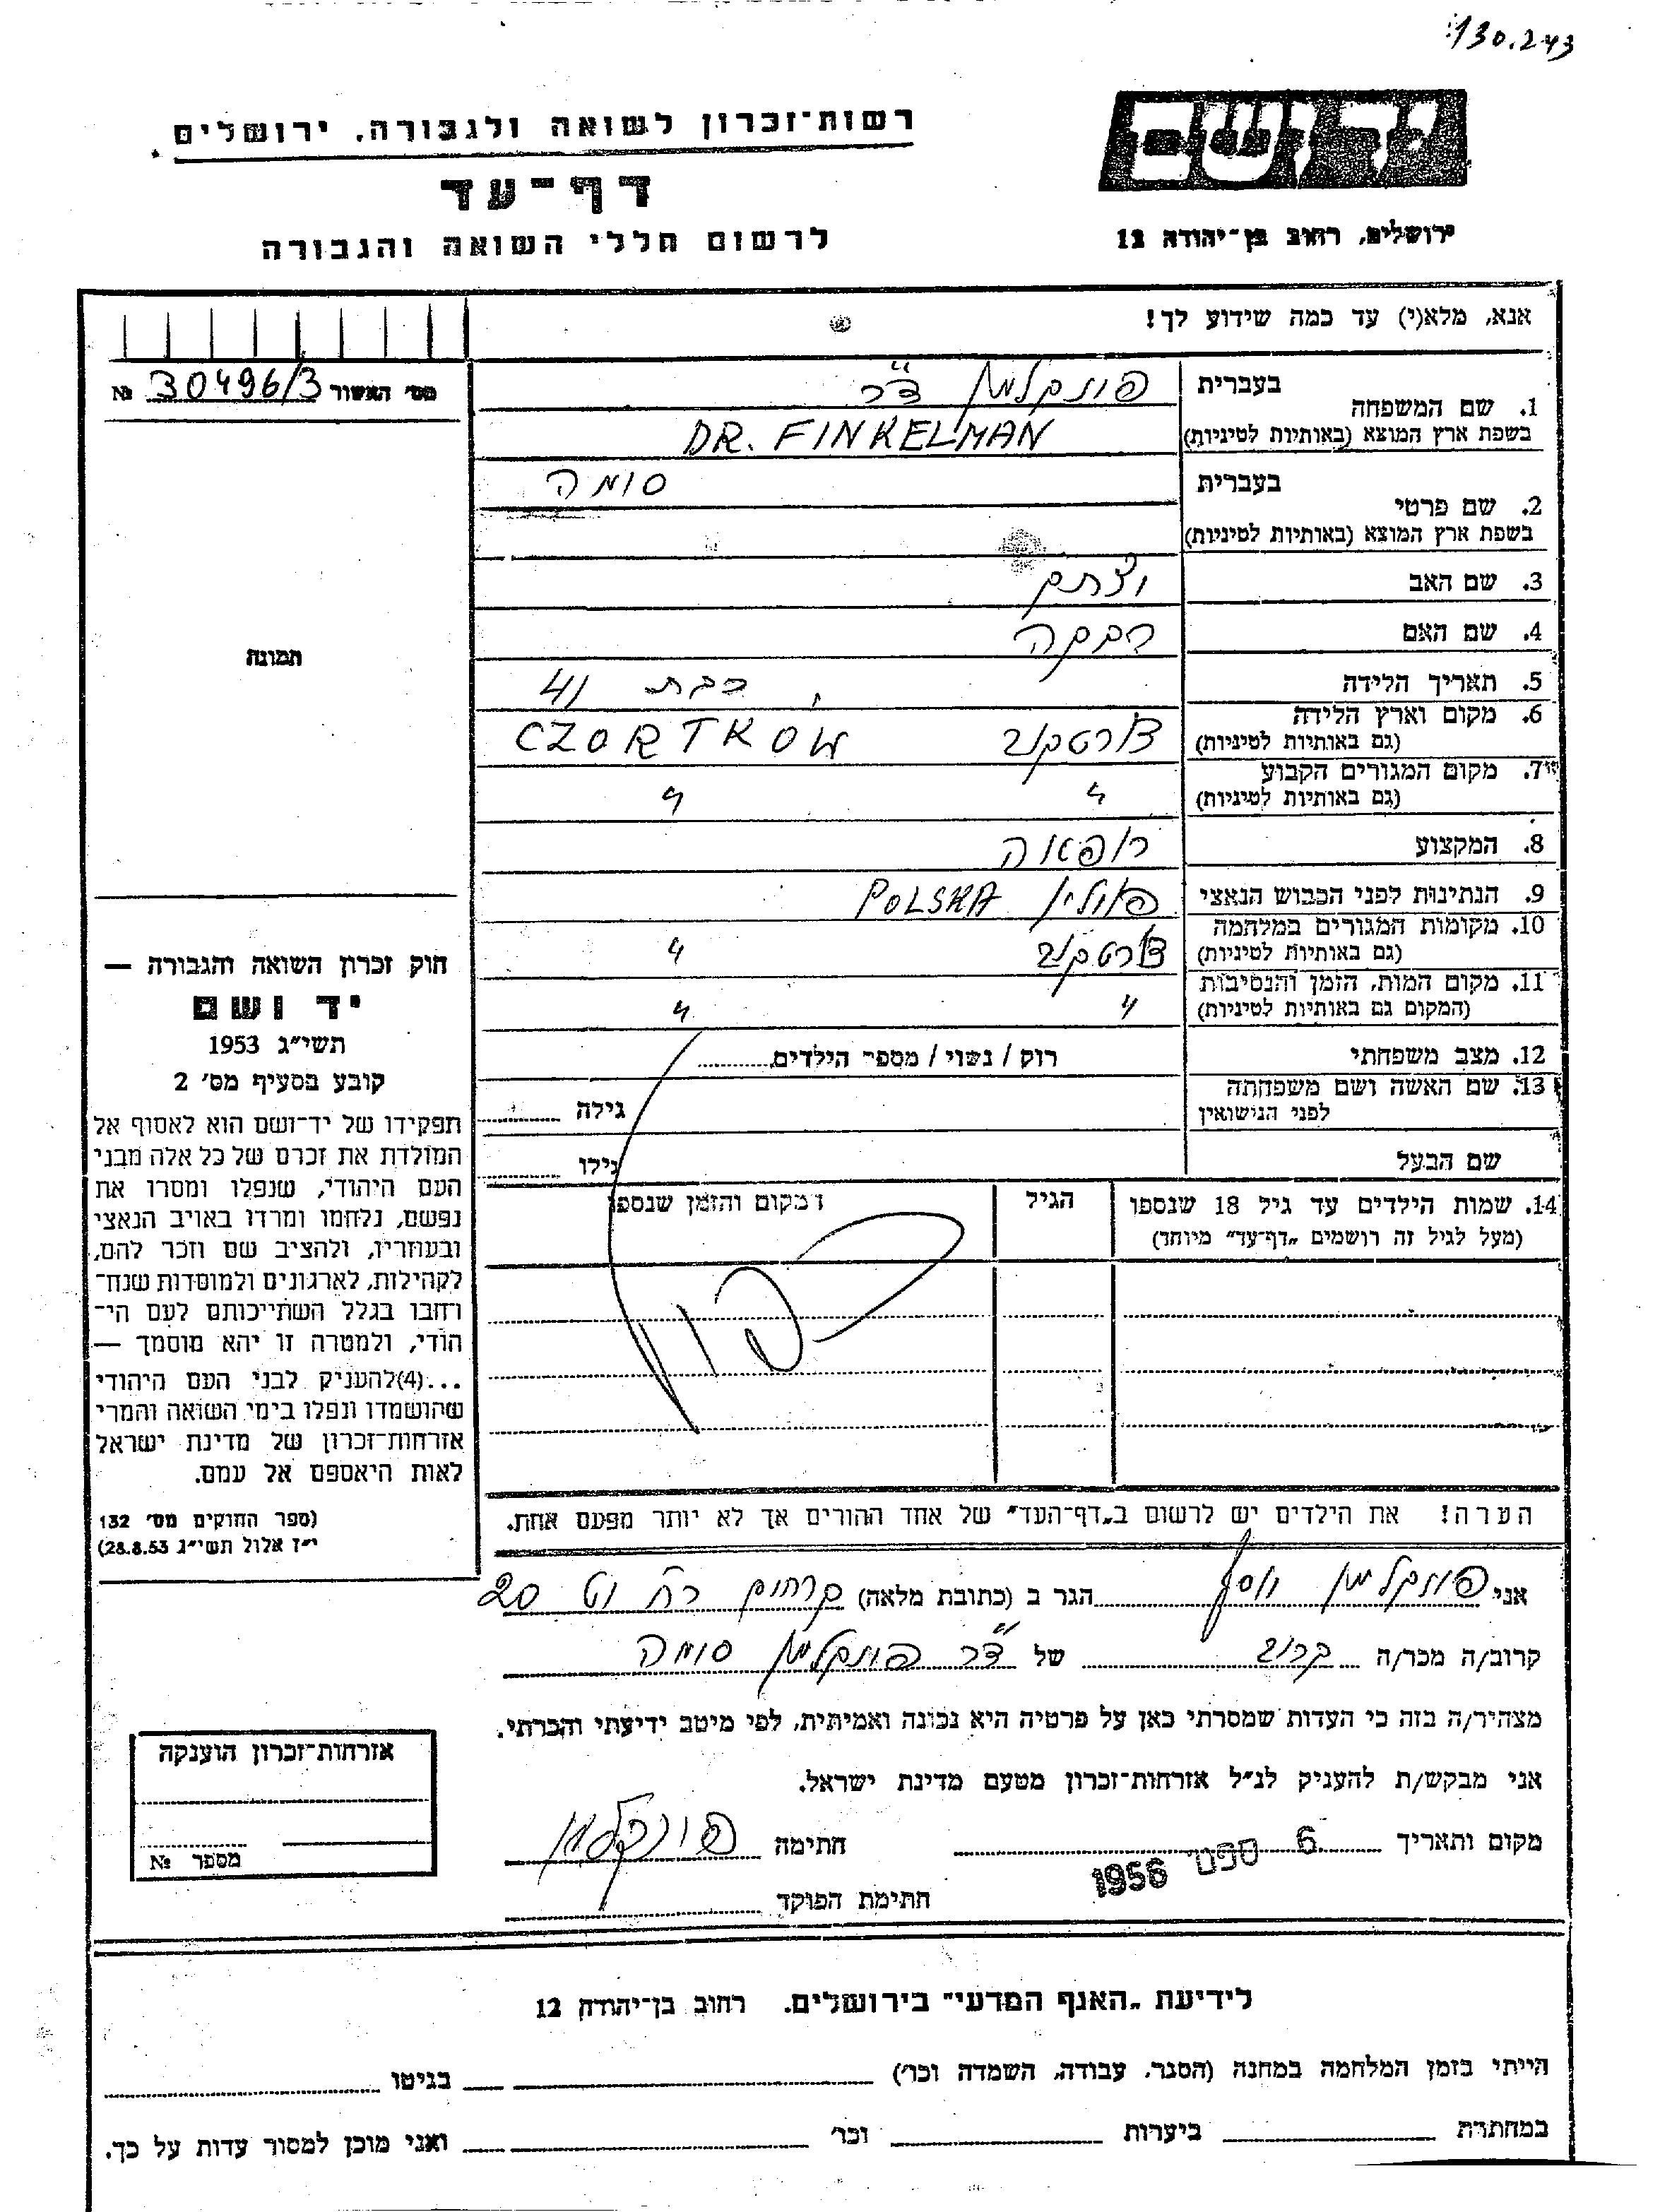 130.243
רשות־זכרון לשואה ולגבורה, ירושלים
דף־עד
לרשום חללי השואה והגבורה
ירושלים, רחוב בן־יהודה 12
אנא, מלא(י) עד כמה שידוע לך!
מס׳ האשור 30496/3 №
תמונה
1. שם המשפחה
בעברית פינקלמן ד״ר
בשפת ארץ המוצא (באותיות לטיניות) DR. FINKELMAN
2. שם פרטי
בעברית סומה
בשפת ארץ המוצא (באותיות לטיניות)
3. שם האב
4. שם האם רבקה
5. תאריך הלידה בת 41
6. מקום וארץ הלידה צ׳ורטקוב CZORTKOW
(גם באותיות לטיניות)
7. מקום המגורים הקבוע 〃 〃
(גם באותיות לטיניות)
8. המקצוע רופאה
9. הנתינות לפני הכבוש הנאצי פולין POLSKA
10. מקומות המגורים במלחמה צ׳ורטקוב 〃
(גם באותיות לטיניות)
11. מקום המות, הזמן והנסיבות 〃 〃
(המקום גם באותיות לטיניות)
12. מצב משפחתי רוק / נשוי / מספר הילדים
13. שם האשה ושם משפחתה
לפני הנישואין גילה
שם הבעל גילו
14. שמות הילדים עד גיל 18 שנספו הגיל המקום והזמן שנספו
(מעל לגיל זה רושמים „דף־עד״ מיוחד)
הערה! את הילדים יש לרשום ב„דף־העד״ של אחד ההורים אך לא יותר מפעם אחת.
חוק זכרון השואה והגבורה —
יד ושם
תשי״ג 1953
קובע בסעיף מס׳ 2
תפקידו של יד־ושם הוא לאסוף אל
המולדת את זכרם של כל אלה מבני
העם היהודי, שנפלו ומסרו את
נפשם, נלחמו ומרדו באויב הנאצי
ובעוזריו, ולהציב שם וזכר להם,
לקהילות, לארגונים ולמוסדות שנח־
רחבו בגלל השתייכותם לעם הי־
הודי, ולמטרה זו יהא מוסמך —
...(4) להעניק לבני העם היהודי
שהושמדו ונפלו בימי השואה והמרי
אזרחות־זכרון של מדינת ישראל
לאות היאספם אל עמם.
(ספר החוקים מס׳ 132
י״ז אלול תשי״ג 28.8.53)
אני פינקלמן יוסף הגר ב (כתובת מלאה) 20
קרוב/ה מכר/ה קרוב של ד״ר פינקלמן סומה
מצהיר/ה בזה כי העדות שמסרתי כאן על פרטיה היא נכונה ואמיתית, לפי מיטב ידיעתי והכרתי.
אני מבקש/ת להעניק לנ״ל אזרחות־זכרון מטעם מדינת ישראל.
מקום ותאריך 6 ספט׳ 1956 חתימה פינקלמן
חתימת הפוקד
אזרחות־זכרון הוענקה
מספר №
לידיעת „האנף המדעי״ בירושלים. רחוב בן־יהודה 12
הייתי בזמן המלחמה במחנה (הסגר, עבודה, השמדה וכר) בגיטו
במחתרת ביערות וכר ואני מוכן למסור עדות על כך.